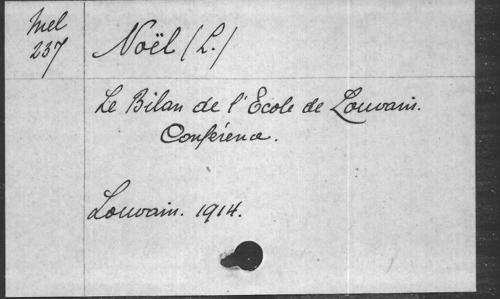 Mel
237
Noël (L.)
Le Bilan de l'Ecole de Louvain.
Conférence.
Louvain. 1914.